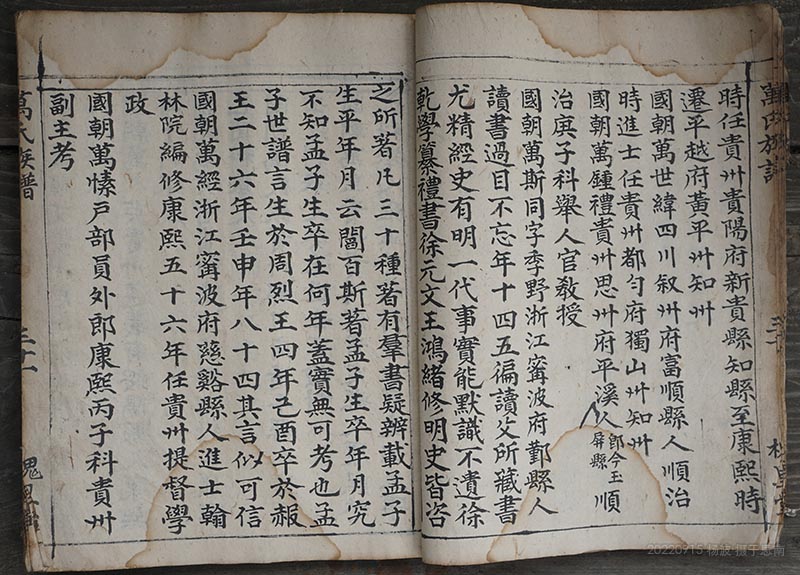 萬氏族譜
時任貴州貴陽府新貴縣知縣至康熙時
遷平越府黃平州知州
國朝萬世緯四川叙州府富順縣人順治
時進士任貴州都勻府獨山州知州
國朝萬鍾禮貴州思州府平溪人即今玉屏縣順
治庚子科舉人官教授
國朝萬斯同字季野浙江寗波府鄞縣人
讀書過目不忘年十四五徧讀父所藏書
尤精經史有明一代事實能默識不遺徐
乾學纂禮書徐元文王鴻緒修明史皆咨
之所著凡三十種著有羣書疑辨載孟子
生平年月云閻百斯著孟子生卒年月究
不知孟子生卒在何年蓋實無可考也孟
子世譜言生於周烈王四年己酉卒於赧
王二十六年壬申年八十四其言似可信
國朝萬經浙江寗波府慈谿縣人進士翰
林院編修康熙五十六年任貴州提督學
政
國朝萬愫戶部員外郎康熙丙子科貴州
副主考
萬氏族譜
三十一
20220915 杨波 摄于思南